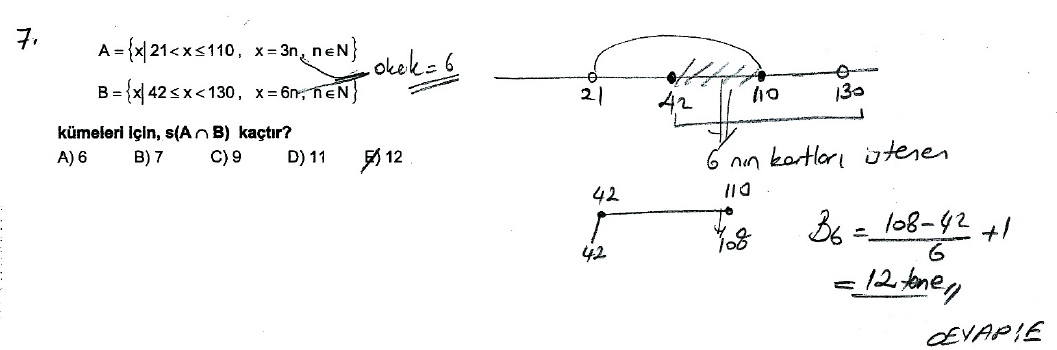 7.
A = {x| 21 < x ≤ 110, x = 3n, n ∈ N}
okek = 6
B = {x| 42 ≤ x < 130, x = 6n, n ∈ N}
kümeleri için, s(A ∩ B) kaçtır?
A) 6 B) 7 C) 9 D) 11 E) 12
21 42 110 130
6 nın katları istenen
42 110
42 108
B6 = 108 - 42 / 6 + 1
= 12 tane //
CEVAP: E